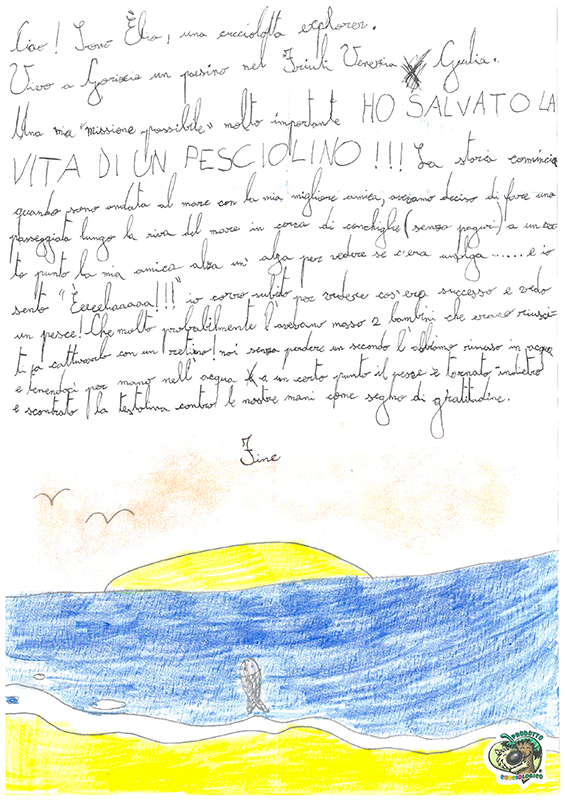 Ciao! Sono Èlia, una cucciolotta explorer.
Vivo a Gorizia un paesino nel Friuli Venezia Giulia.
Una mia "missione possibile" molto importante HO SALVATO LA
VITA DI UN PESCIOLINO!!! La storia comincia
quando sono andata al mare con la mia migliore amica, avevamo deciso di fare una
passeggiata lungo la riva del mare in cerca di conchiglie (senza paguri) a un cer-
to punto la mia amica alza un'alga per vedere se c'era ...... e io
sento "Èeeeliaaaaa!!!" io corro subito per vedere cos'era successo e vedo
un pesce! Che molto probabilmente l'avevano messo 2 bambini che erano riusci-
ti a catturarlo con un retino! noi senza perdere un secondo l'abbiamo rimesso in acqua
e tenendoci per mano nell'acqua e a un certo punto il pesce è tornato indietro
e scontrato la testolina contro le nostre mani come segno di gratitudine.
Fine
PRODOTTO
CUCCIOLOGICO